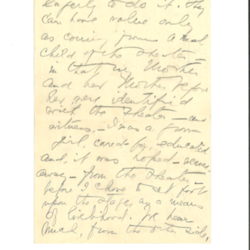 eagerly to do it. They
can have value only
as coming from a real
child of the theater —
in that my Mother
and her Mother before
her were identified
with the theater — as
actress — I was a farm
girl, cared for, educated
and, it was hoped —
away — from the theater
before I chose to set foot
upon the stage as a means
of livelihood. We hear
much, from the other side,